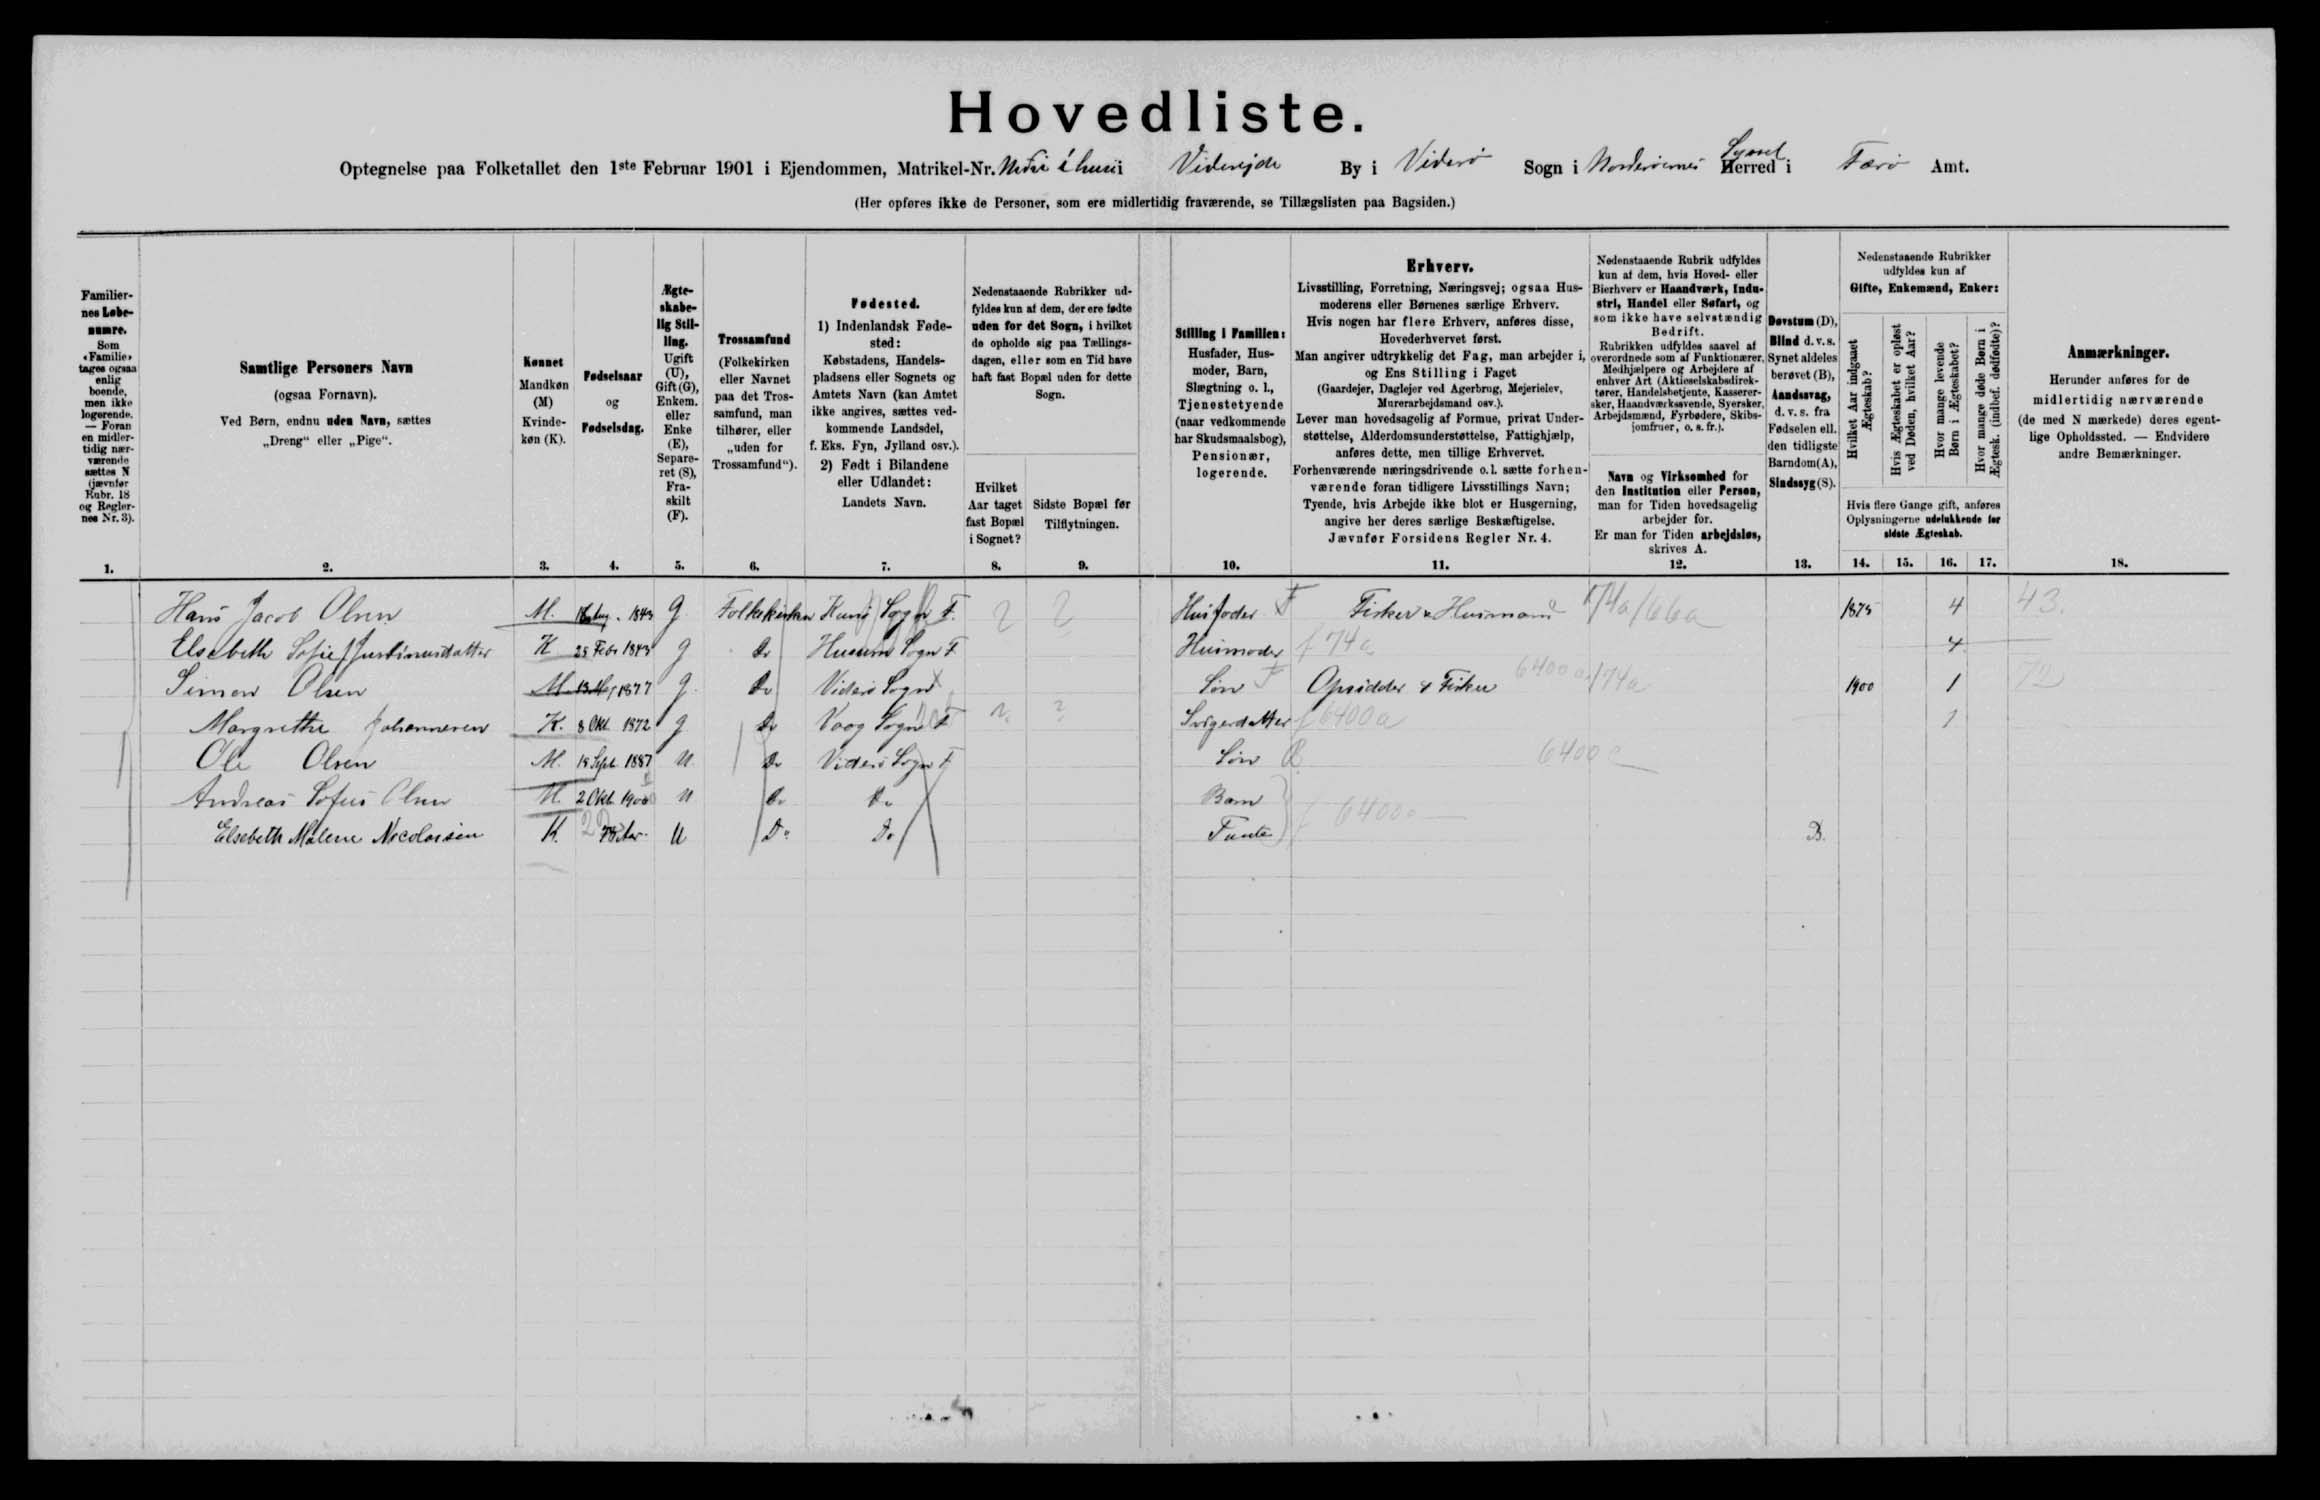 Hovedliste.
Optegnelse paa Folketallet den 1ste Februar 1901 i Ejendommen, Matrikel-Nr. i Viderejde By i Viderø Sogn i Norderøernes Herred Syssel i Færø Amt.
(Her opføres ikke de Personer, som ere midlertidig fraværende, se Tillægslisten paa Bagsiden.)
Familiernes Løbenumre.
Som «Familie» tages ogsaa enlig boende, men ikke logerende. — Foran en midlertidig nærværende sættes N (jævnfør Rubr. 18 og Reglernes Nr. 3).
1.
Samtlige Personers Navn
(ogsaa Fornavn).
Ved Børn, endnu uden Navn, sættes
„Dreng“ eller „Pige“.
2.
Kønnet
Mandkøn (M)
Kvindekøn (K).
3.
Fødselsaar
og
Fødselsdag.
4.
Ægteskabelig Stilling.
Ugift (U), Gift (G), Enkem. eller Enke (E), Separeret (S), Fraskilt (F).
5.
Trossamfund
(Folkekirken eller Navnet paa det Trossamfund, man tilhører, eller „uden for Trossamfund“).
6.
Fødested.
1) Indenlandsk Fødested:
Købstadens, Handelspladsens eller Sognets og Amtets Navn (kan Amtet ikke angives, sættes vedkommende Landsdel, f. Eks. Fyn, Jylland osv.).
2) Født i Bilandene eller Udlandet:
Landets Navn.
7.
Nedenstaaende Rubrikker udfyldes kun af dem, der ere fødte uden for det Sogn, i hvilket de opholde sig paa Tællingsdagen, eller som en Tid have haft fast Bopæl uden for dette Sogn.
Hvilket Aar taget fast Bopæl i Sognet?
8.
Sidste Bopæl før Tilflytningen.
9.
Stilling i Familien:
Husfader, Husmoder, Barn, Slægtning o. l., Tjenestetyende (naar vedkommende har Skudsmaalsbog), Pensionær, logerende.
10.
Erhverv.
Livsstilling, Forretning, Næringsvej; ogsaa Husmoderens eller Børnenes særlige Erhverv.
Hvis nogen har flere Erhverv, anføres disse, Hovederhvervet først.
Man angiver udtrykkelig det Fag, man arbejder i, og Ens Stilling i Faget
(Gaardejer, Daglejer ved Agerbrug, Mejerielev, Murerarbejdsmand osv.).
Lever man hovedsagelig af Formue, privat Understøttelse, Alderdomsunderstøttelse, Fattighjælp, anføres dette, men tillige Erhvervet.
Forhenværende næringsdrivende o. l. sætte forhenværende foran tidligere Livsstillings Navn;
Tyende, hvis Arbejde ikke blot er Husgerning, angive her deres særlige Beskæftigelse.
Jævnfør Forsidens Regler Nr. 4.
11.
Nedenstaaende Rubrik udfyldes kun af dem, hvis Hoved- eller Bierhverv er Haandværk, Industri, Handel eller Søfart, og som ikke have selvstændig Bedrift.
Rubrikken udfyldes saavel af overordnede som af Funktionærer, Medhjælpere og Arbejdere af enhver Art (Aktieselskabsdirektører, Handelsbetjente, Kasserersker, Haandværkssvende, Syersker, Arbejdsmænd, Fyrbødere, Skibsjomfruer, o. s. fr.).
Navn og Virksomhed for den Institution eller Person, man for Tiden hovedsagelig arbejder for.
Er man for Tiden arbejdsløs, skrives A.
12.
Døvstum (D),
Blind d. v. s. Synet aldeles berøvet (B),
Aandssvag, d. v. s. fra Fødselen ell. den tidligste Barndom (A),
Sindssyg (S).
13.
Nedenstaaende Rubrikker udfyldes kun af Gifte, Enkemænd, Enker:
Hvilket Aar indgaaet Ægteskab?
Hvis Ægteskabet er opløst ved Døden, hvilket Aar?
Hvor mange levende Børn i Ægteskabet?
Hvor mange døde Børn i Ægtesk. (indbef. dødfødte)?
Hvis flere Gange gift, anføres Oplysningerne udelukkende for sidste Ægteskab.
14. 15. 16. 17.
Anmærkninger.
Herunder anføres for de midlertidig nærværende (de med N mærkede) deres egentlige Opholdssted. — Endvidere andre Bemærkninger.
18.
Hans Jacob Olsen M. 1843 G Folkekirken Kunø Sogn F. ? ? Husfader F Fisker & Husmand 74a/66a 1875 4 43.
Elsebeth Sofie Justinusdatter K 28 Febr 1843 G Do Husum Sogn F Husmoder f 74a 4
Simon Olsen M 1877 G. Do Viderø Sogn Søn F Opsidder & Fisker 6400a/74a 1900 1 72
Margrethe Johannesen K. 8 Okt 1872 G Do Vaag Sogn F ? ? Svigerdatter f 6400a 1
Ole Olsen M. 18 Sept 1887 U. Do Viderø Sogn F Søn 6400a
Andreas Sofus Olsen M. 2 Okt. 1900 U Do Do Barn
Elsebeth Malene Nicolaisen K. U Do Do Tante f 6400a B.